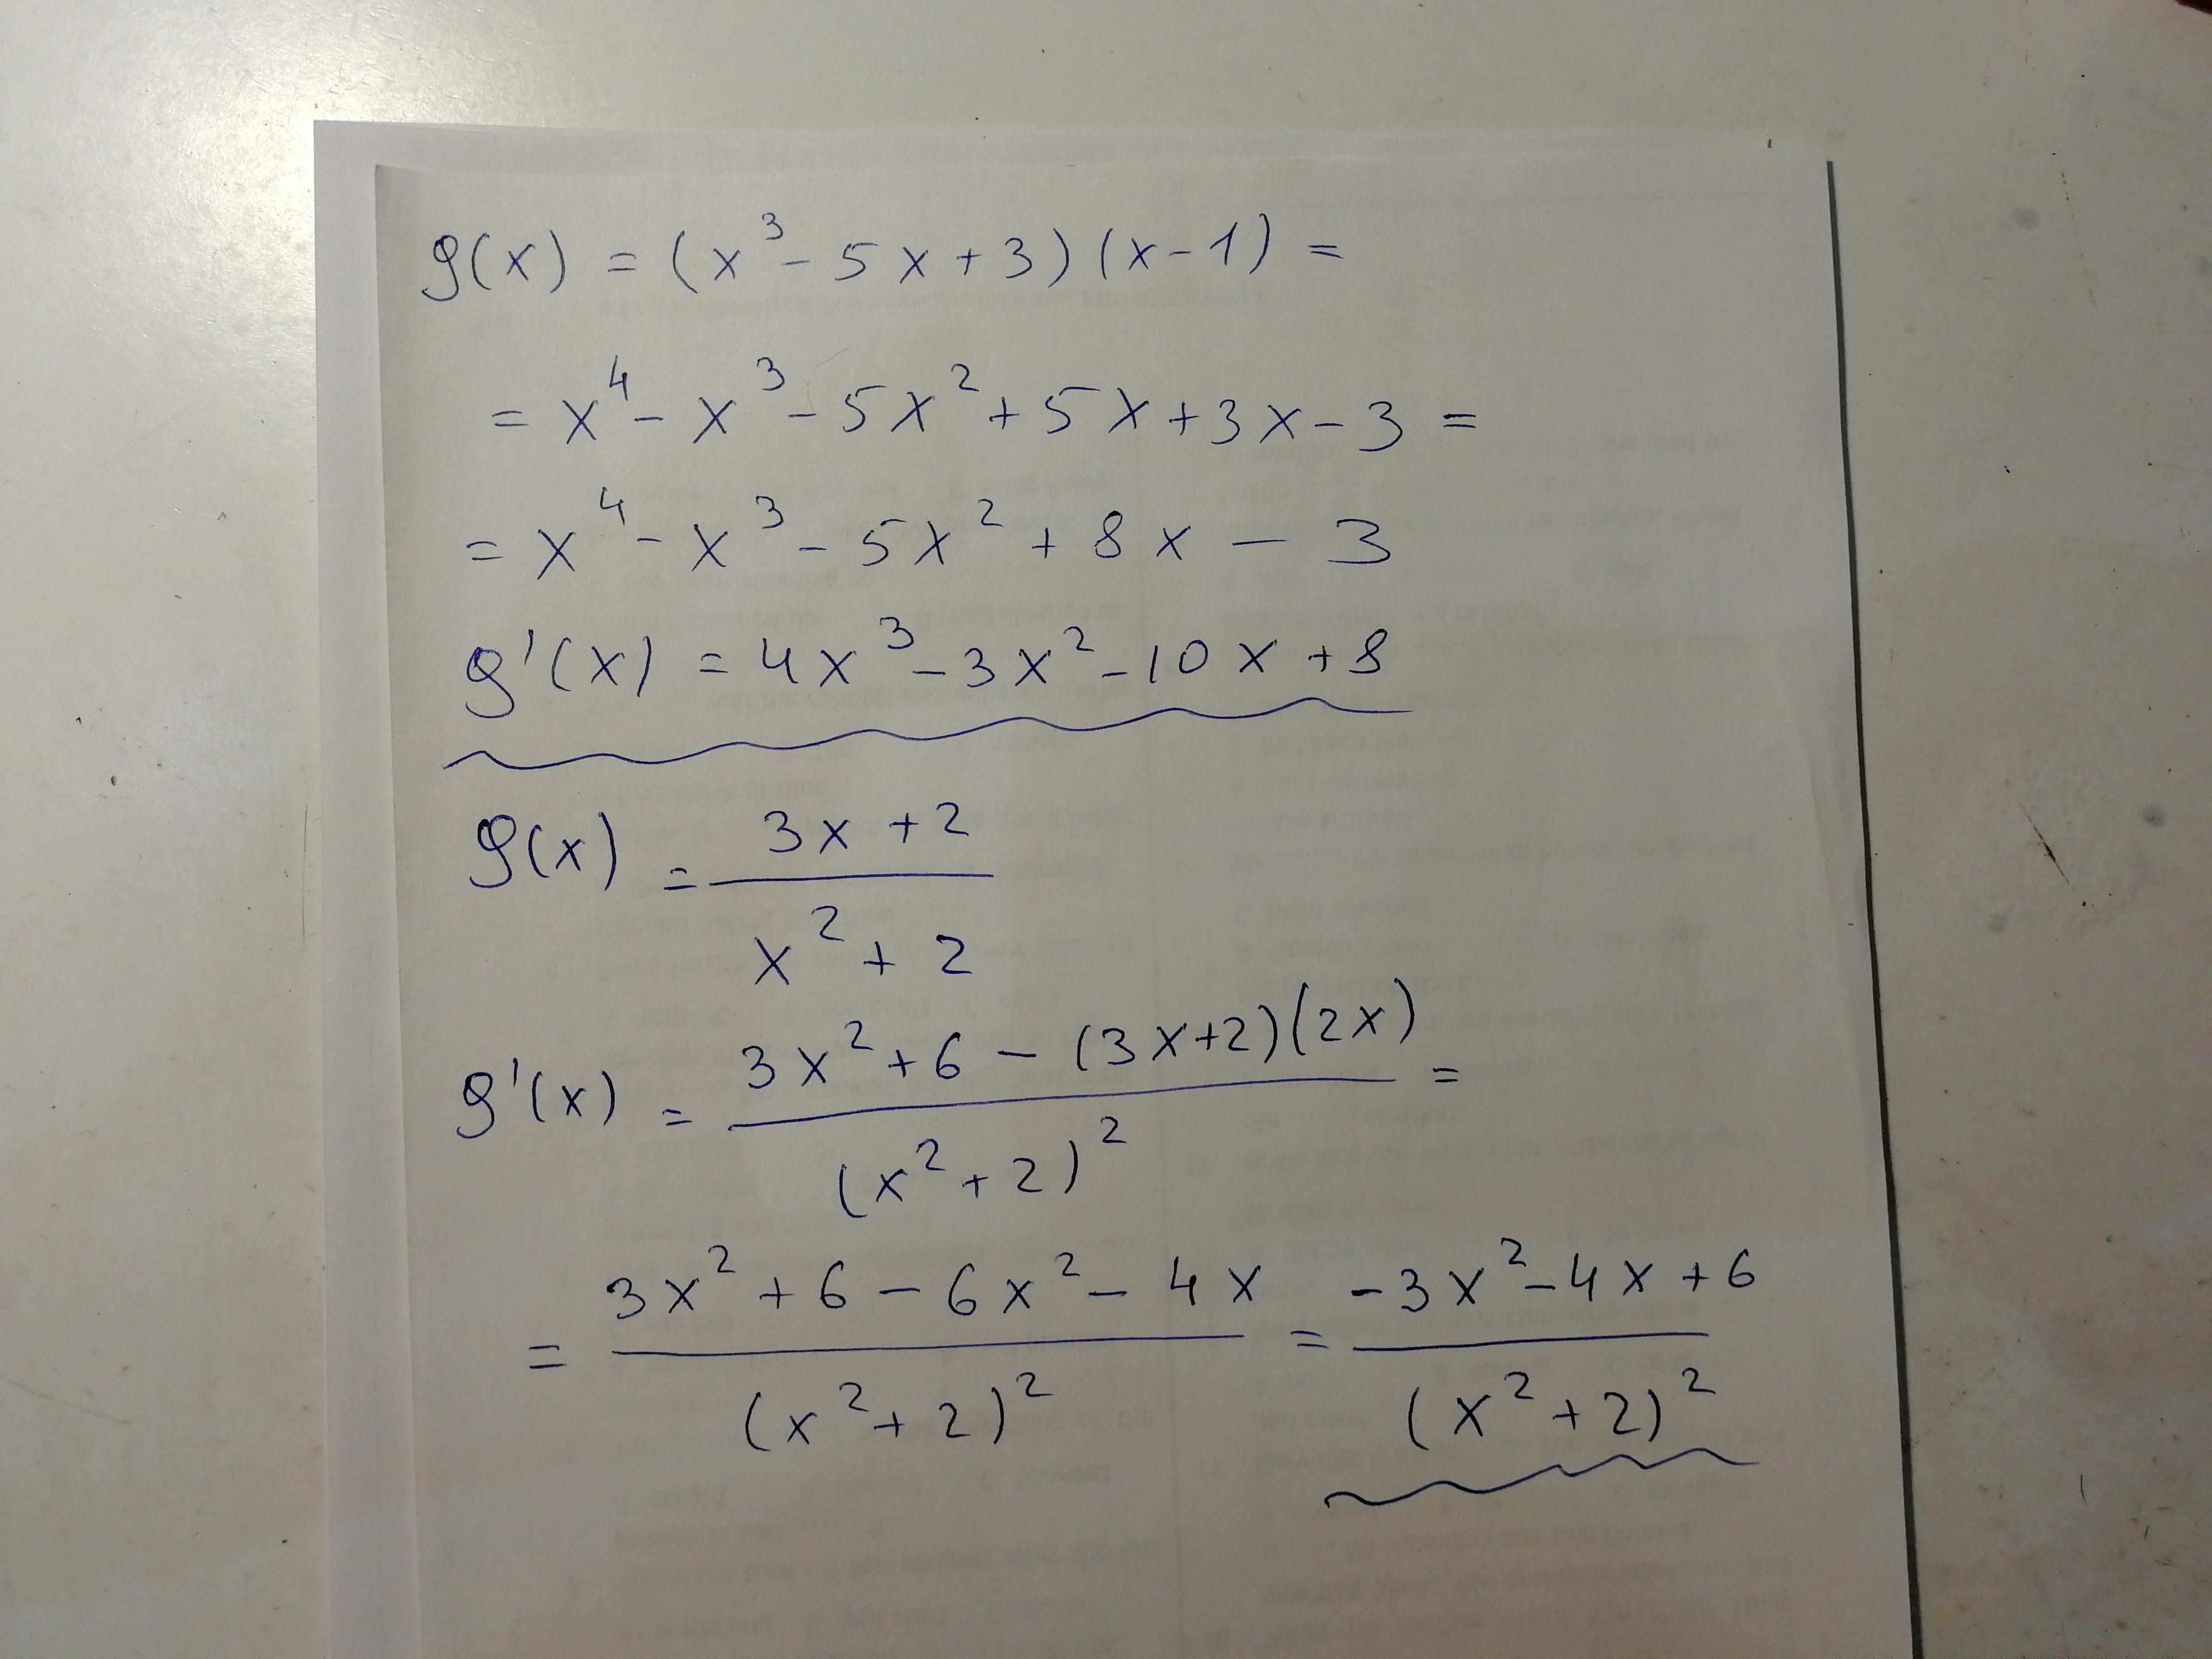 g(x) = (x³ - 5x + 3)(x - 1) =
= x⁴ - x³ - 5x² + 5x + 3x - 3 =
= x⁴ - x³ - 5x² + 8x - 3
g'(x) = 4x³ - 3x² - 10x + 8
g(x) = (3x + 2) / (x² + 2)
g'(x) = (3x² + 6 - (3x+2)(2x)) / (x² + 2)² =
= (3x² + 6 - 6x² - 4x) / (x² + 2)² = (-3x² - 4x + 6) / (x² + 2)²